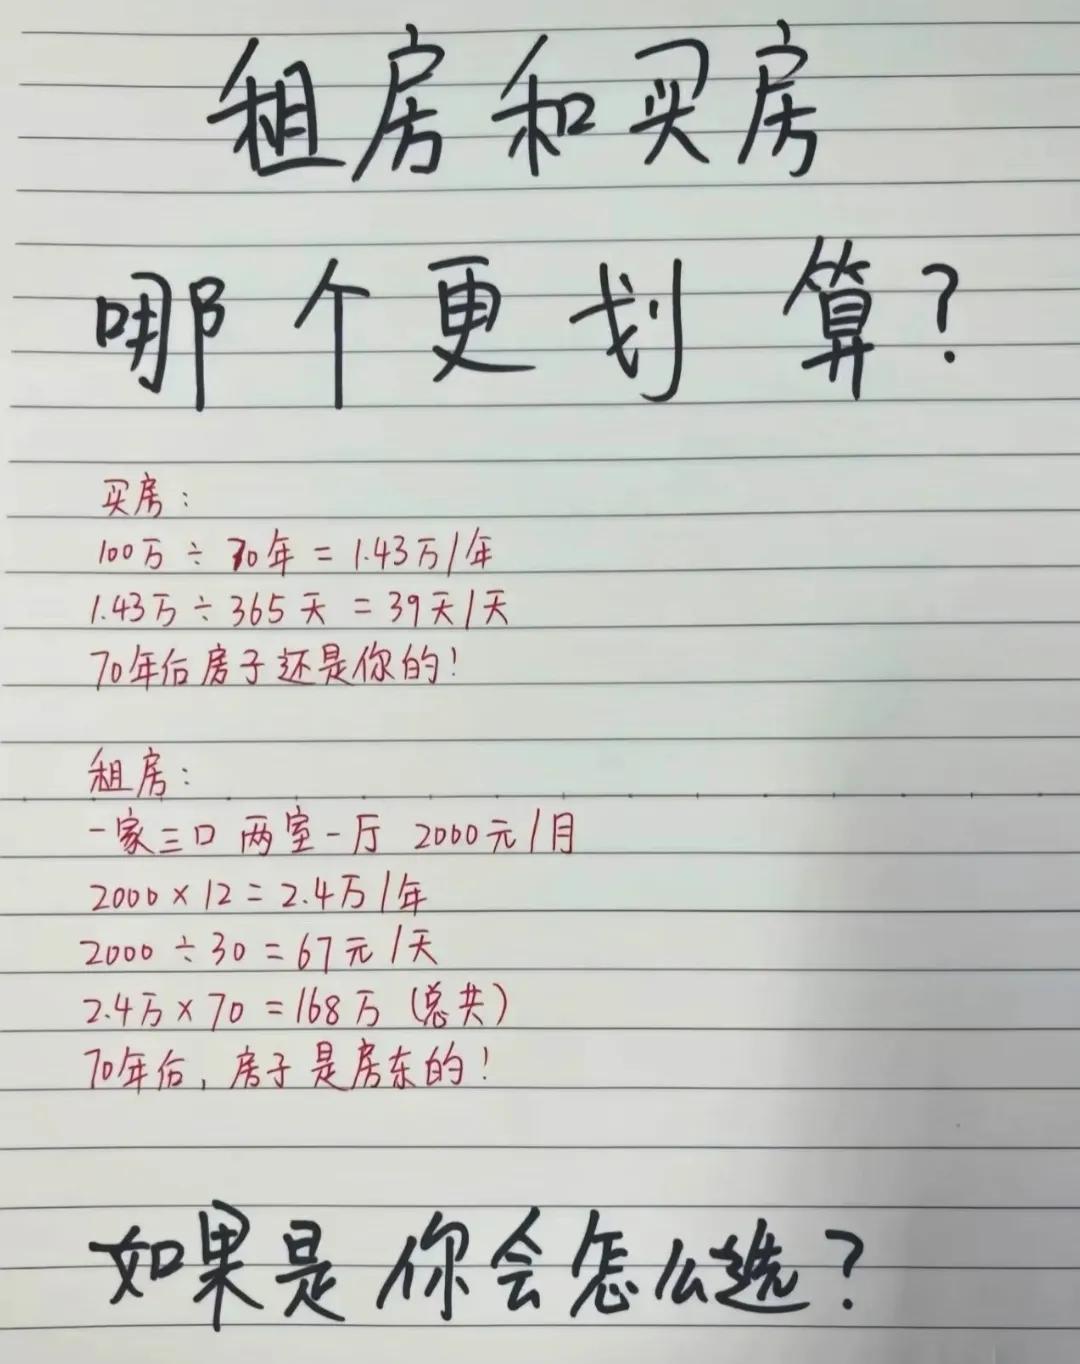 租房和买房
哪个更划算?
买房:
100万÷70年=1.43万/年
1.43万÷365天=39天/天
70年后房子还是你的!
租房:
一家三口 两室一厅 2000元/月
2000×12=2.4万/年
2000÷30=67元/天
2.4万×70=168万(总共)
70年后,房子是房东的!
如果是你会怎么选?